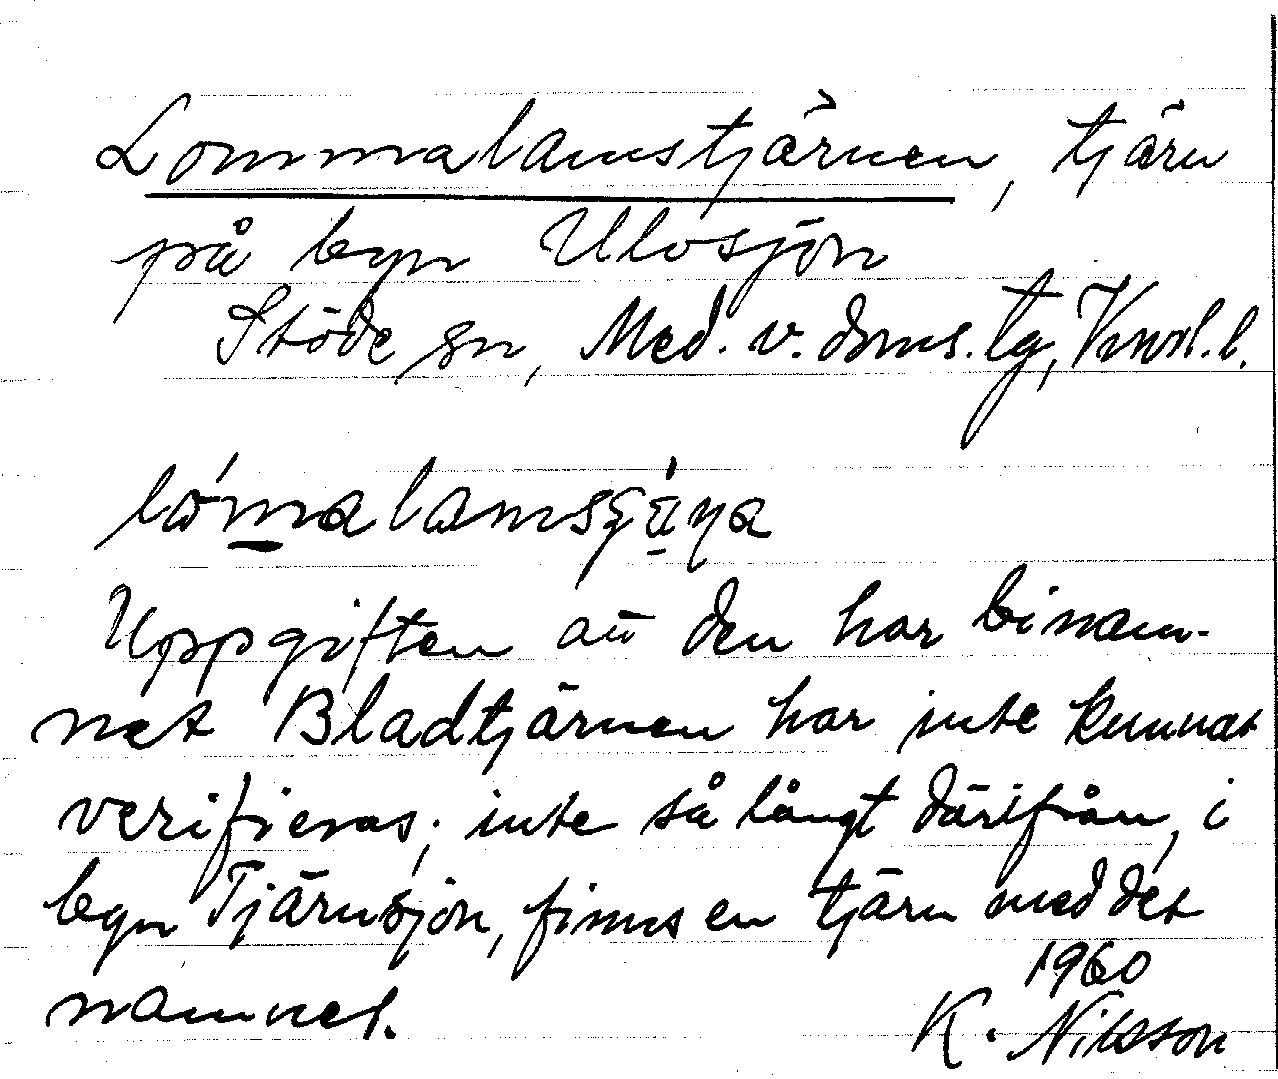 Lommalamstjärnen, tjärn
på byn Ulvsjön
Stöde sn, Med. v. doms. lg,
Uppgiften att den har binam-
net Bladtjärnen har inte kunnat
verifieras; inte så långt därifrån, i
byn Tjärnsjön, finns en tjärn med det
namnet.
1960
K. Nilsson